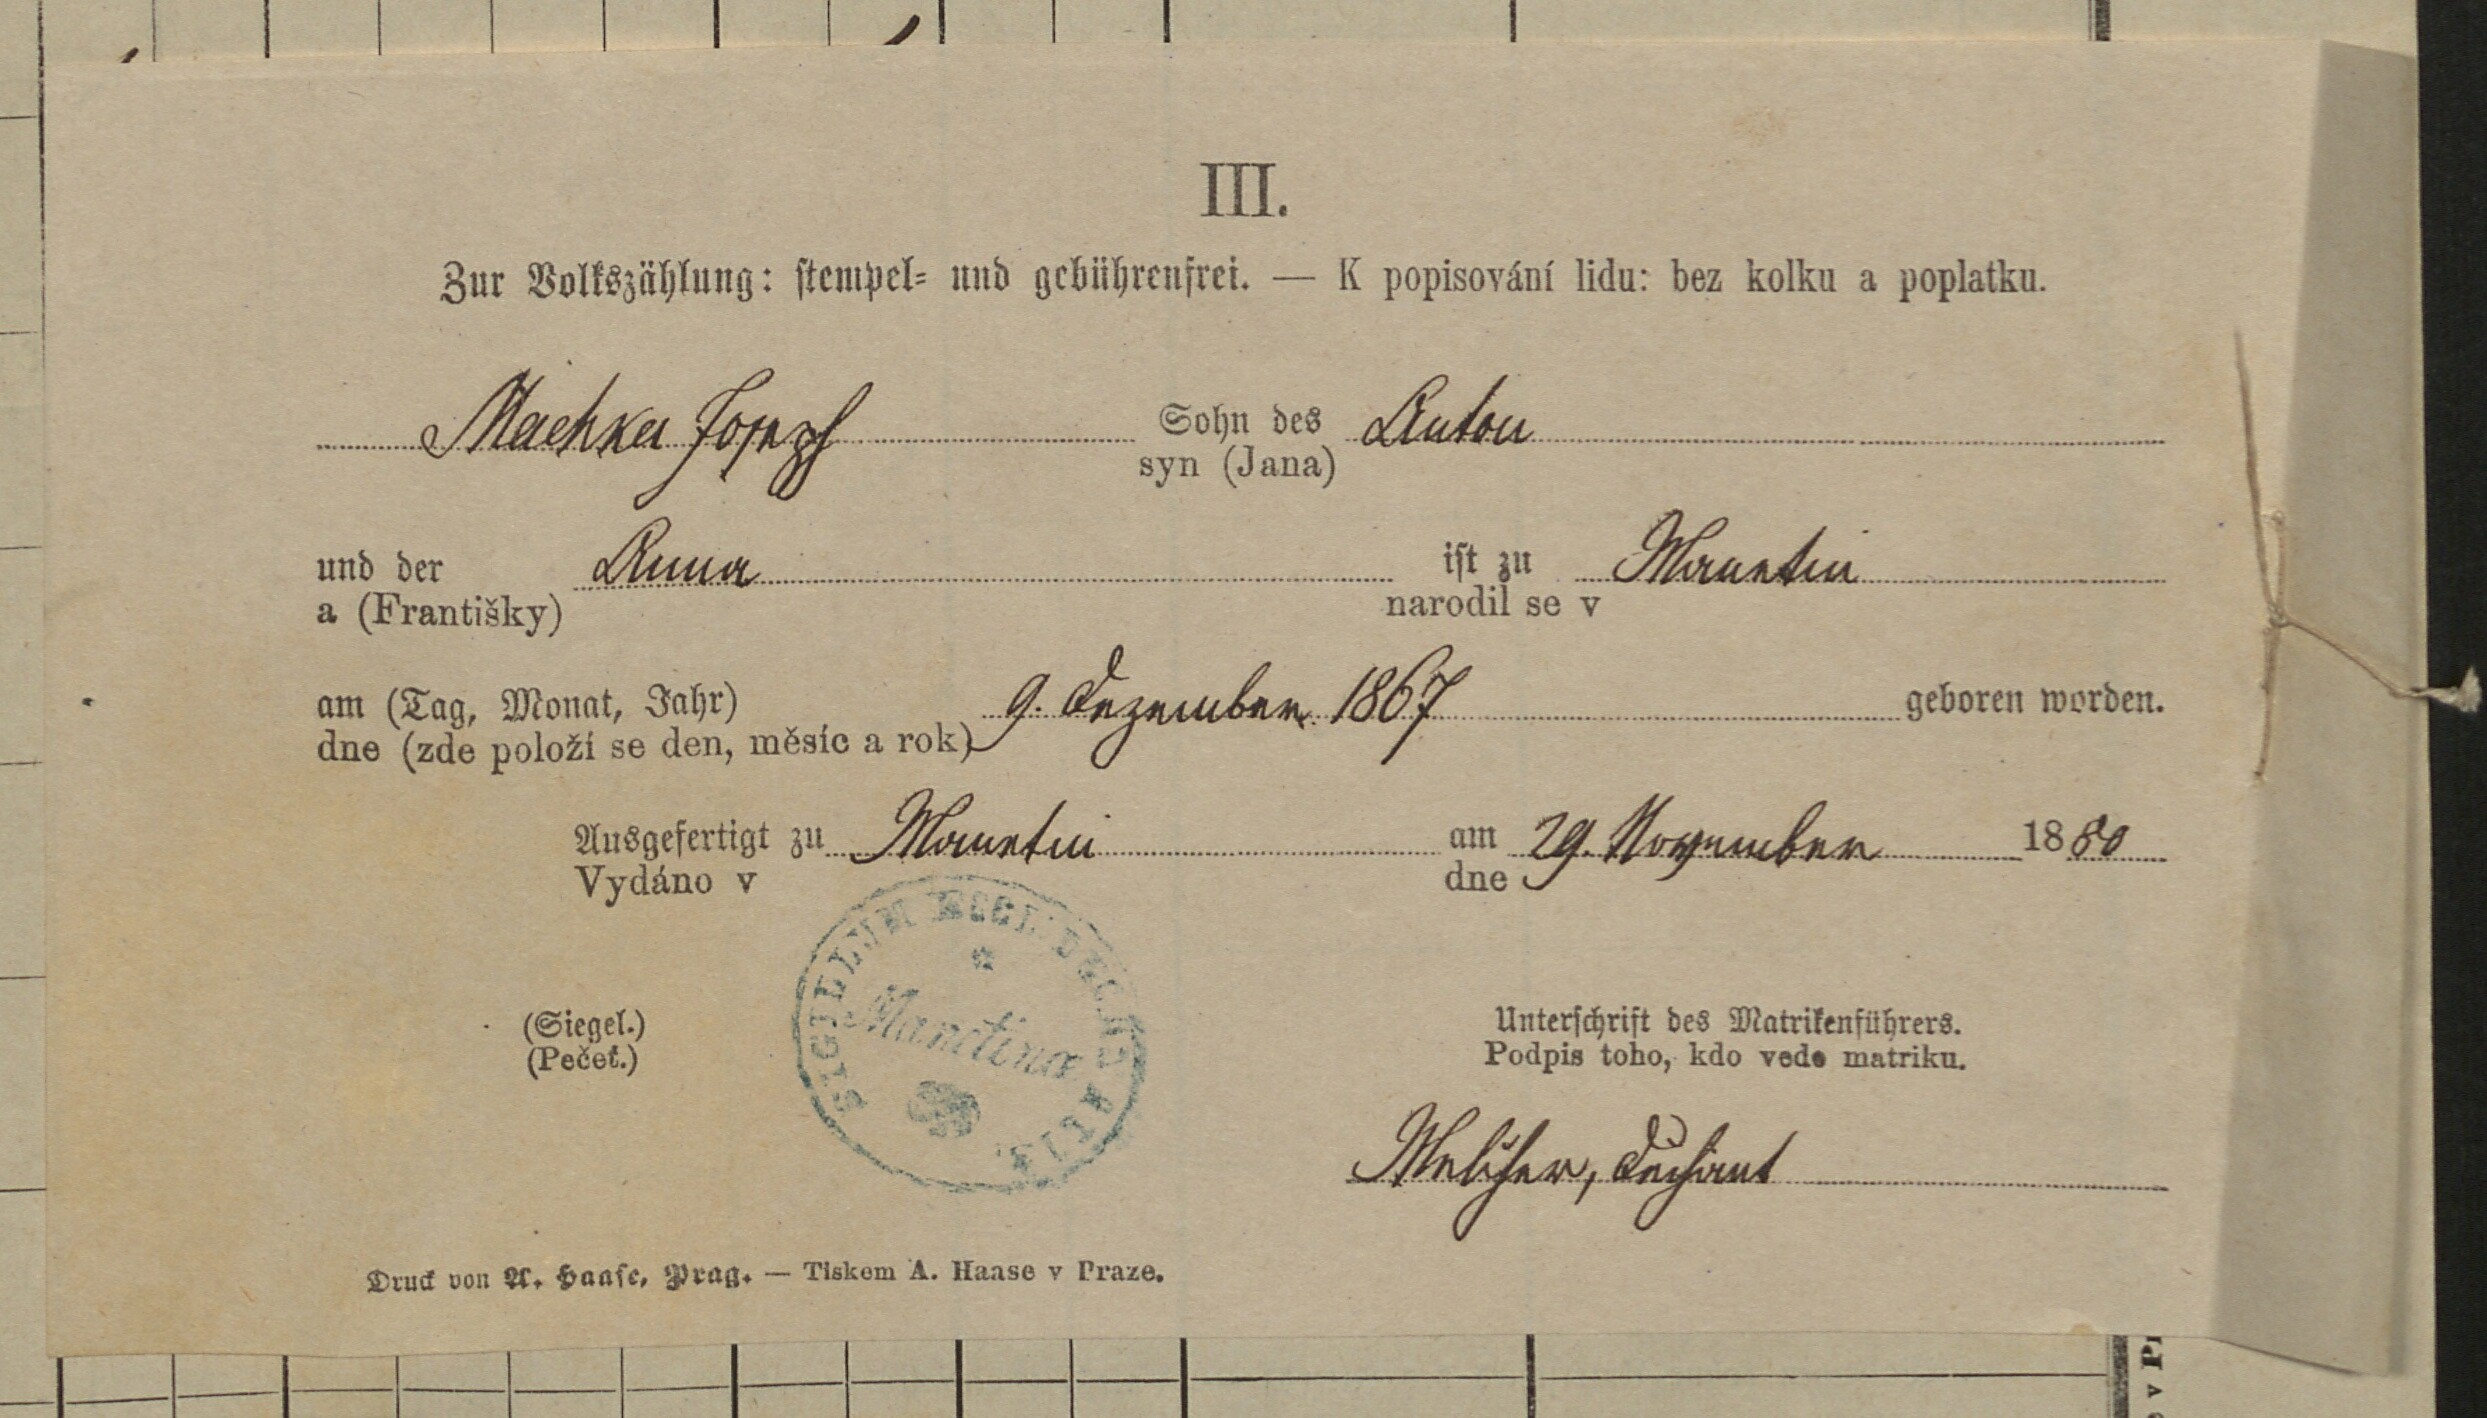 III.
Zur Volkszählung: stempel- und gebührenfrei. — K popisování lidu: bez kolku a poplatku.
Machka Josepf Sohn des Anton
syn (Jana)
und der Anna ist zu Manetin
a (Františky) narodil se v
am (Tag, Monat, Jahr) 9. Dezember 1867 geboren worden.
dne (zde položí se den, měsíc a rok)
Ausgefertigt zu Manetin am 29. November 1880
Vydáno v dne
SIGILLUM ECCL. DECANALIS
Manetinae
(Siegel.)
(Pečeť.)
Unterschrift des Matrikenführers.
Podpis toho, kdo vede matriku.
Melicher, Dechant
Druck von A. Haase, Prag. — Tiskem A. Haase v Praze.